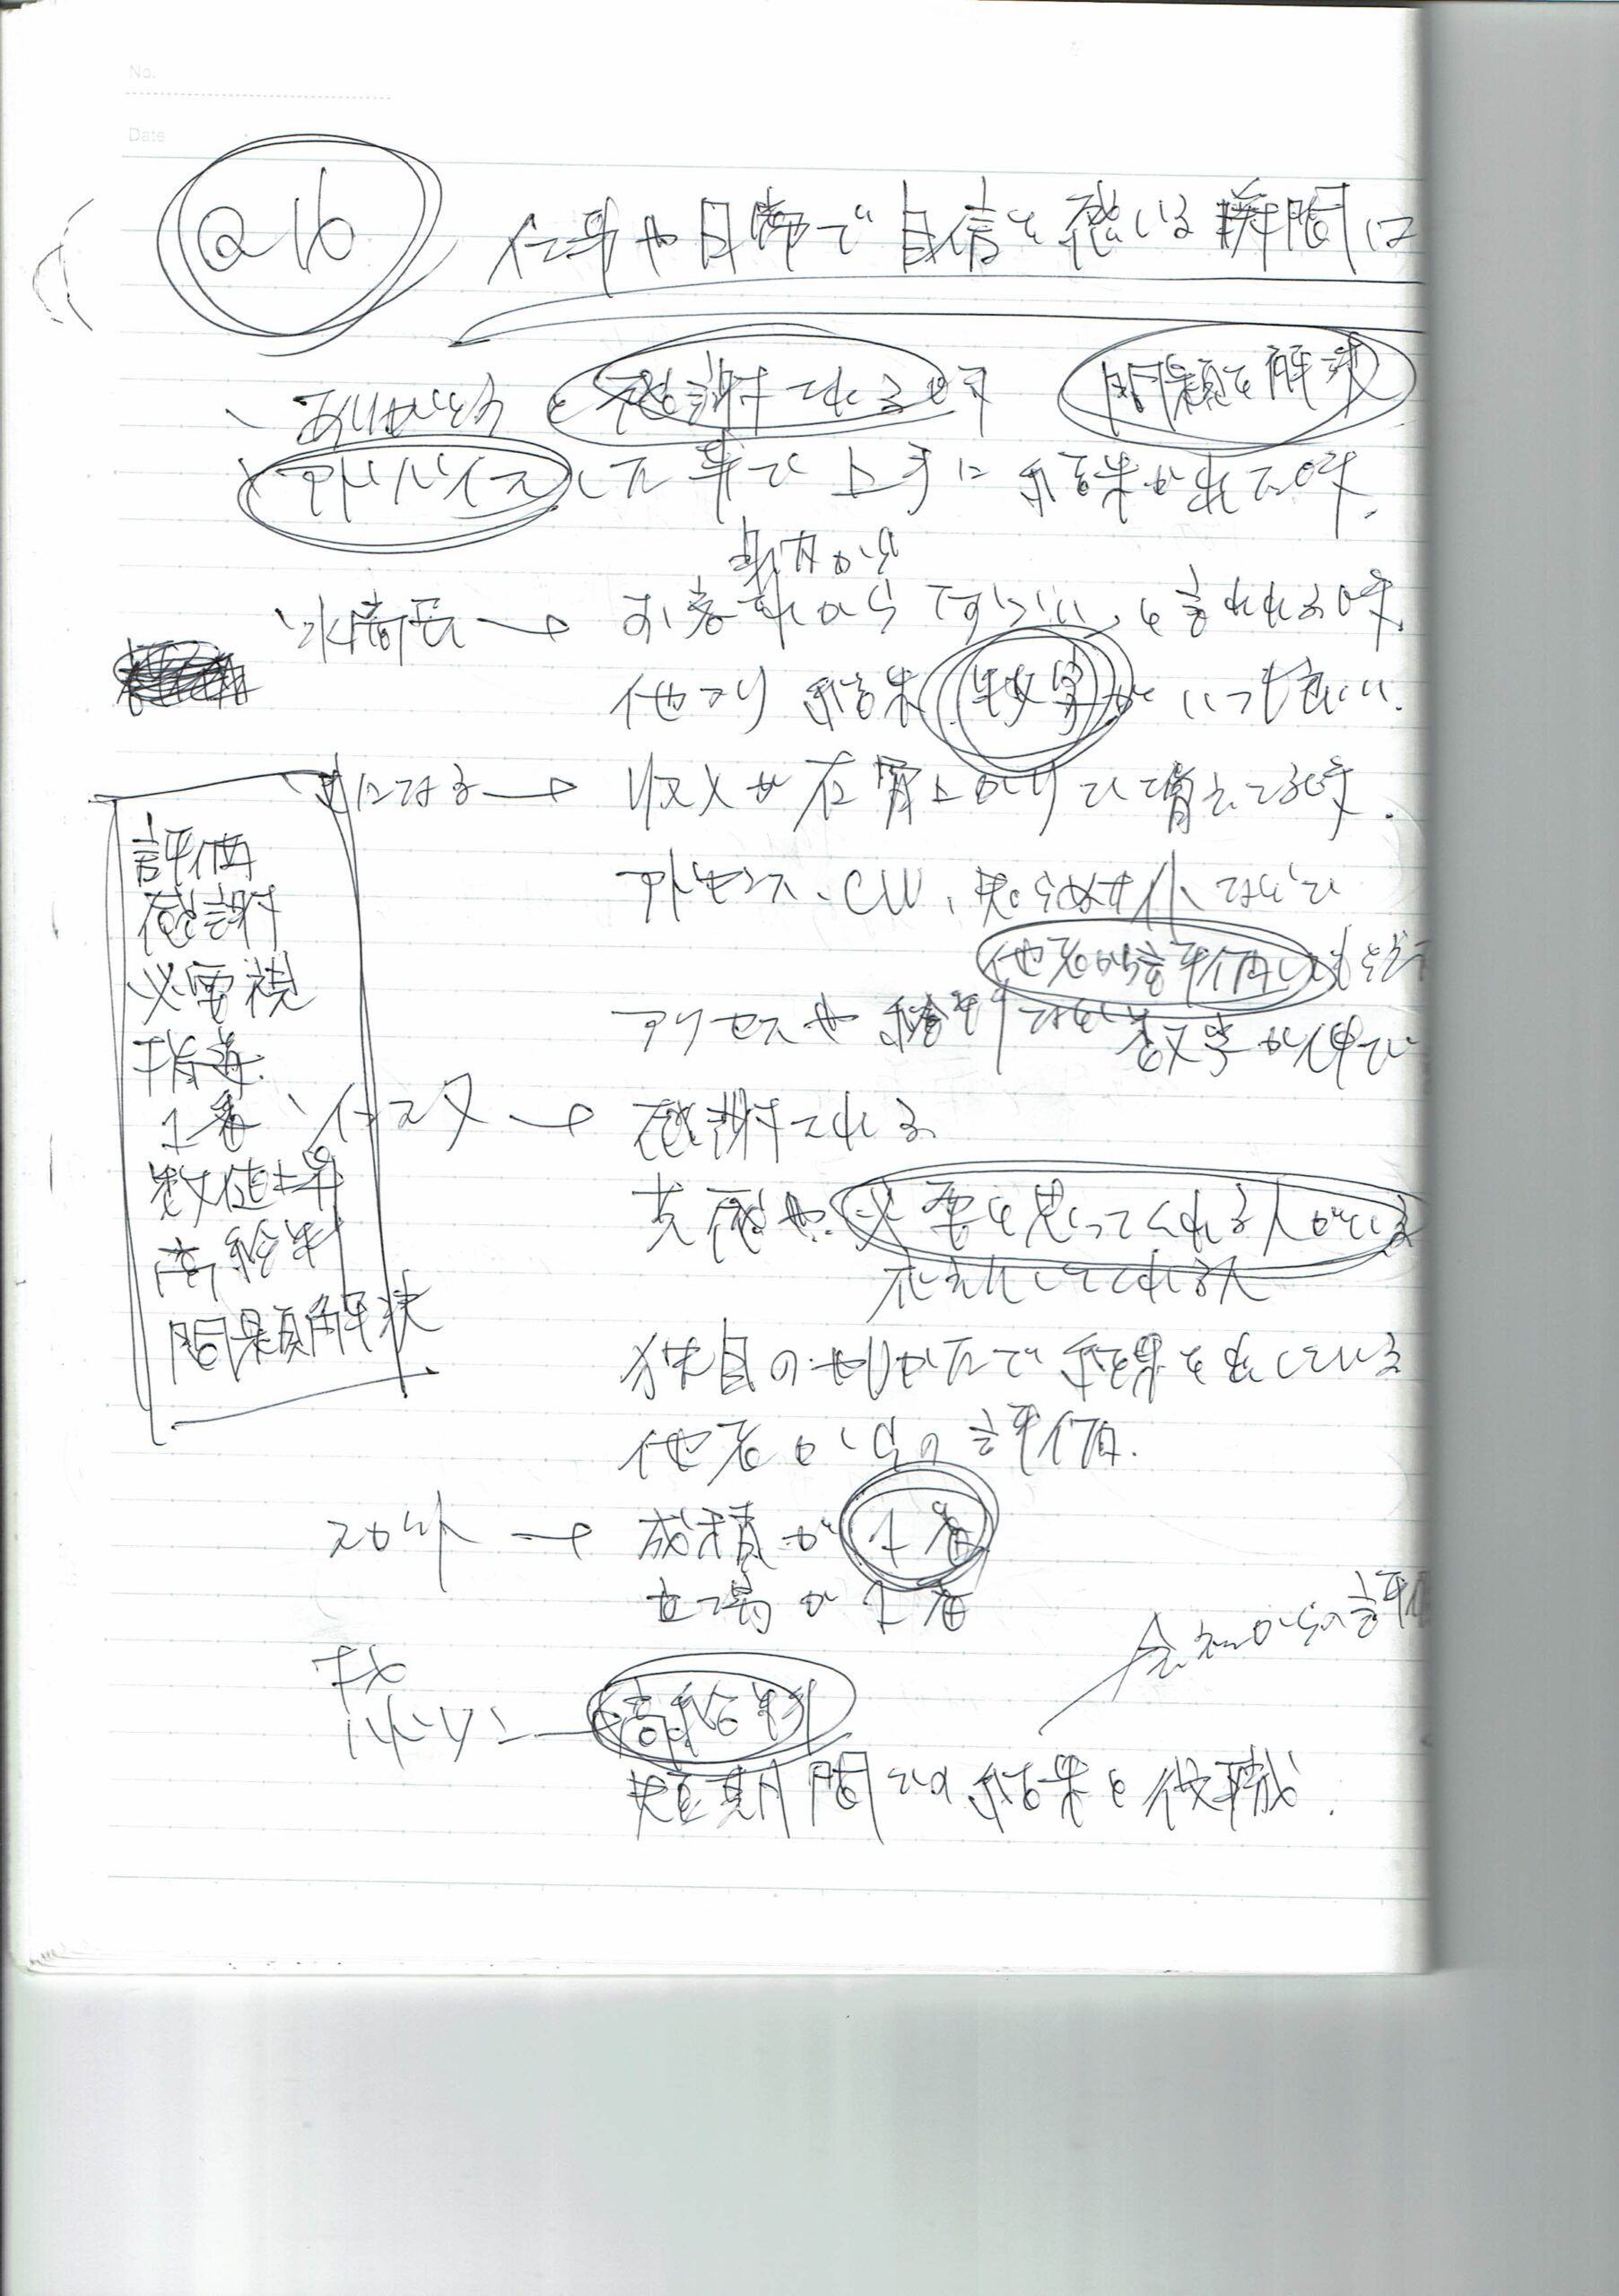 No.
Date
Q16
仕事や日常で自信を感じる瞬間は
ありがとうと感謝される時 問題を解決
アドバイスした事で上手に結果が出た時.
身内から
お客様から すごい と言われる時.
他より 結果 数字がいつも良い.
になる → 収入が右肩上がりで増えてる時.
アドセンス、CW、など
他者から評価
アクセスや給料 など数字が伸び
インスタ → 感謝される
共感や必要と思ってくれる人がいる
応えてくれる人
独自のやりかたで結果を出している
他者からの評価.
スロ外 → 成績が1番
立場が1番
会社からの評価
高給料
短期間での結果と役職.
評価
感謝
必要視
指導
1番
数値上昇
高給料
問題解決